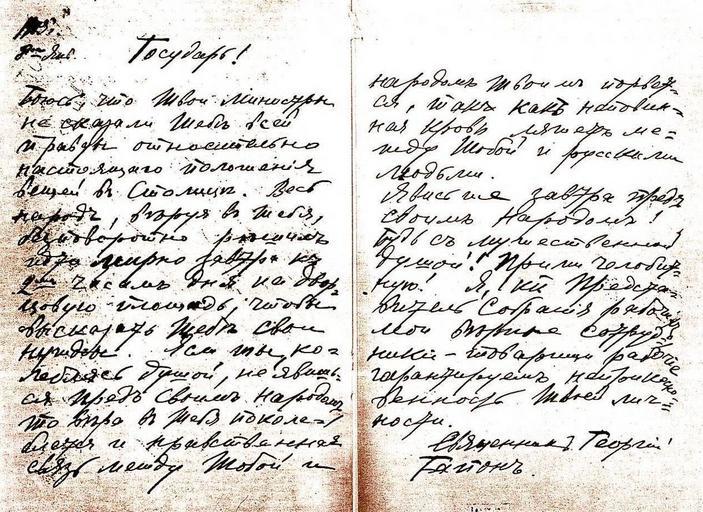 1905 г.
8го Янв.
Государь!
Боюсь, что Твои Министры
не сказали Тебѣ всей
правды относительно
настоящаго положенія
вещей въ Столицѣ. Весь
народъ, вѣруя въ Тебя,
безповоротно рѣшилъ
завтра къ
2мъ часамъ дня на двор-
цовую площадь, чтобы
высказать Тебѣ свои
нужды. Если Ты, ко-
леблясь душой, не явишь-
ся предъ своимъ народомъ,
то вѣра въ Тебя поколе-
блется и нравственная
связь между Тобой и
народомъ Твоимъ порвет-
ся, такъ какъ неповин-
ная кровь ляжетъ ме-
жду Тобой и русскими
людьми.
Явись же завтра предъ
своимъ Народомъ!
Будь съ мужественной
душой! Прими челобит-
ную! Я, Предста-
витель Собранія рабочихъ,
мои вѣрные сотруд-
ники - товарищи рабочіе
гарантируемъ неприкосно-
венность Твоей лич-
ности.
Священникъ Георгій
Гапонъ.